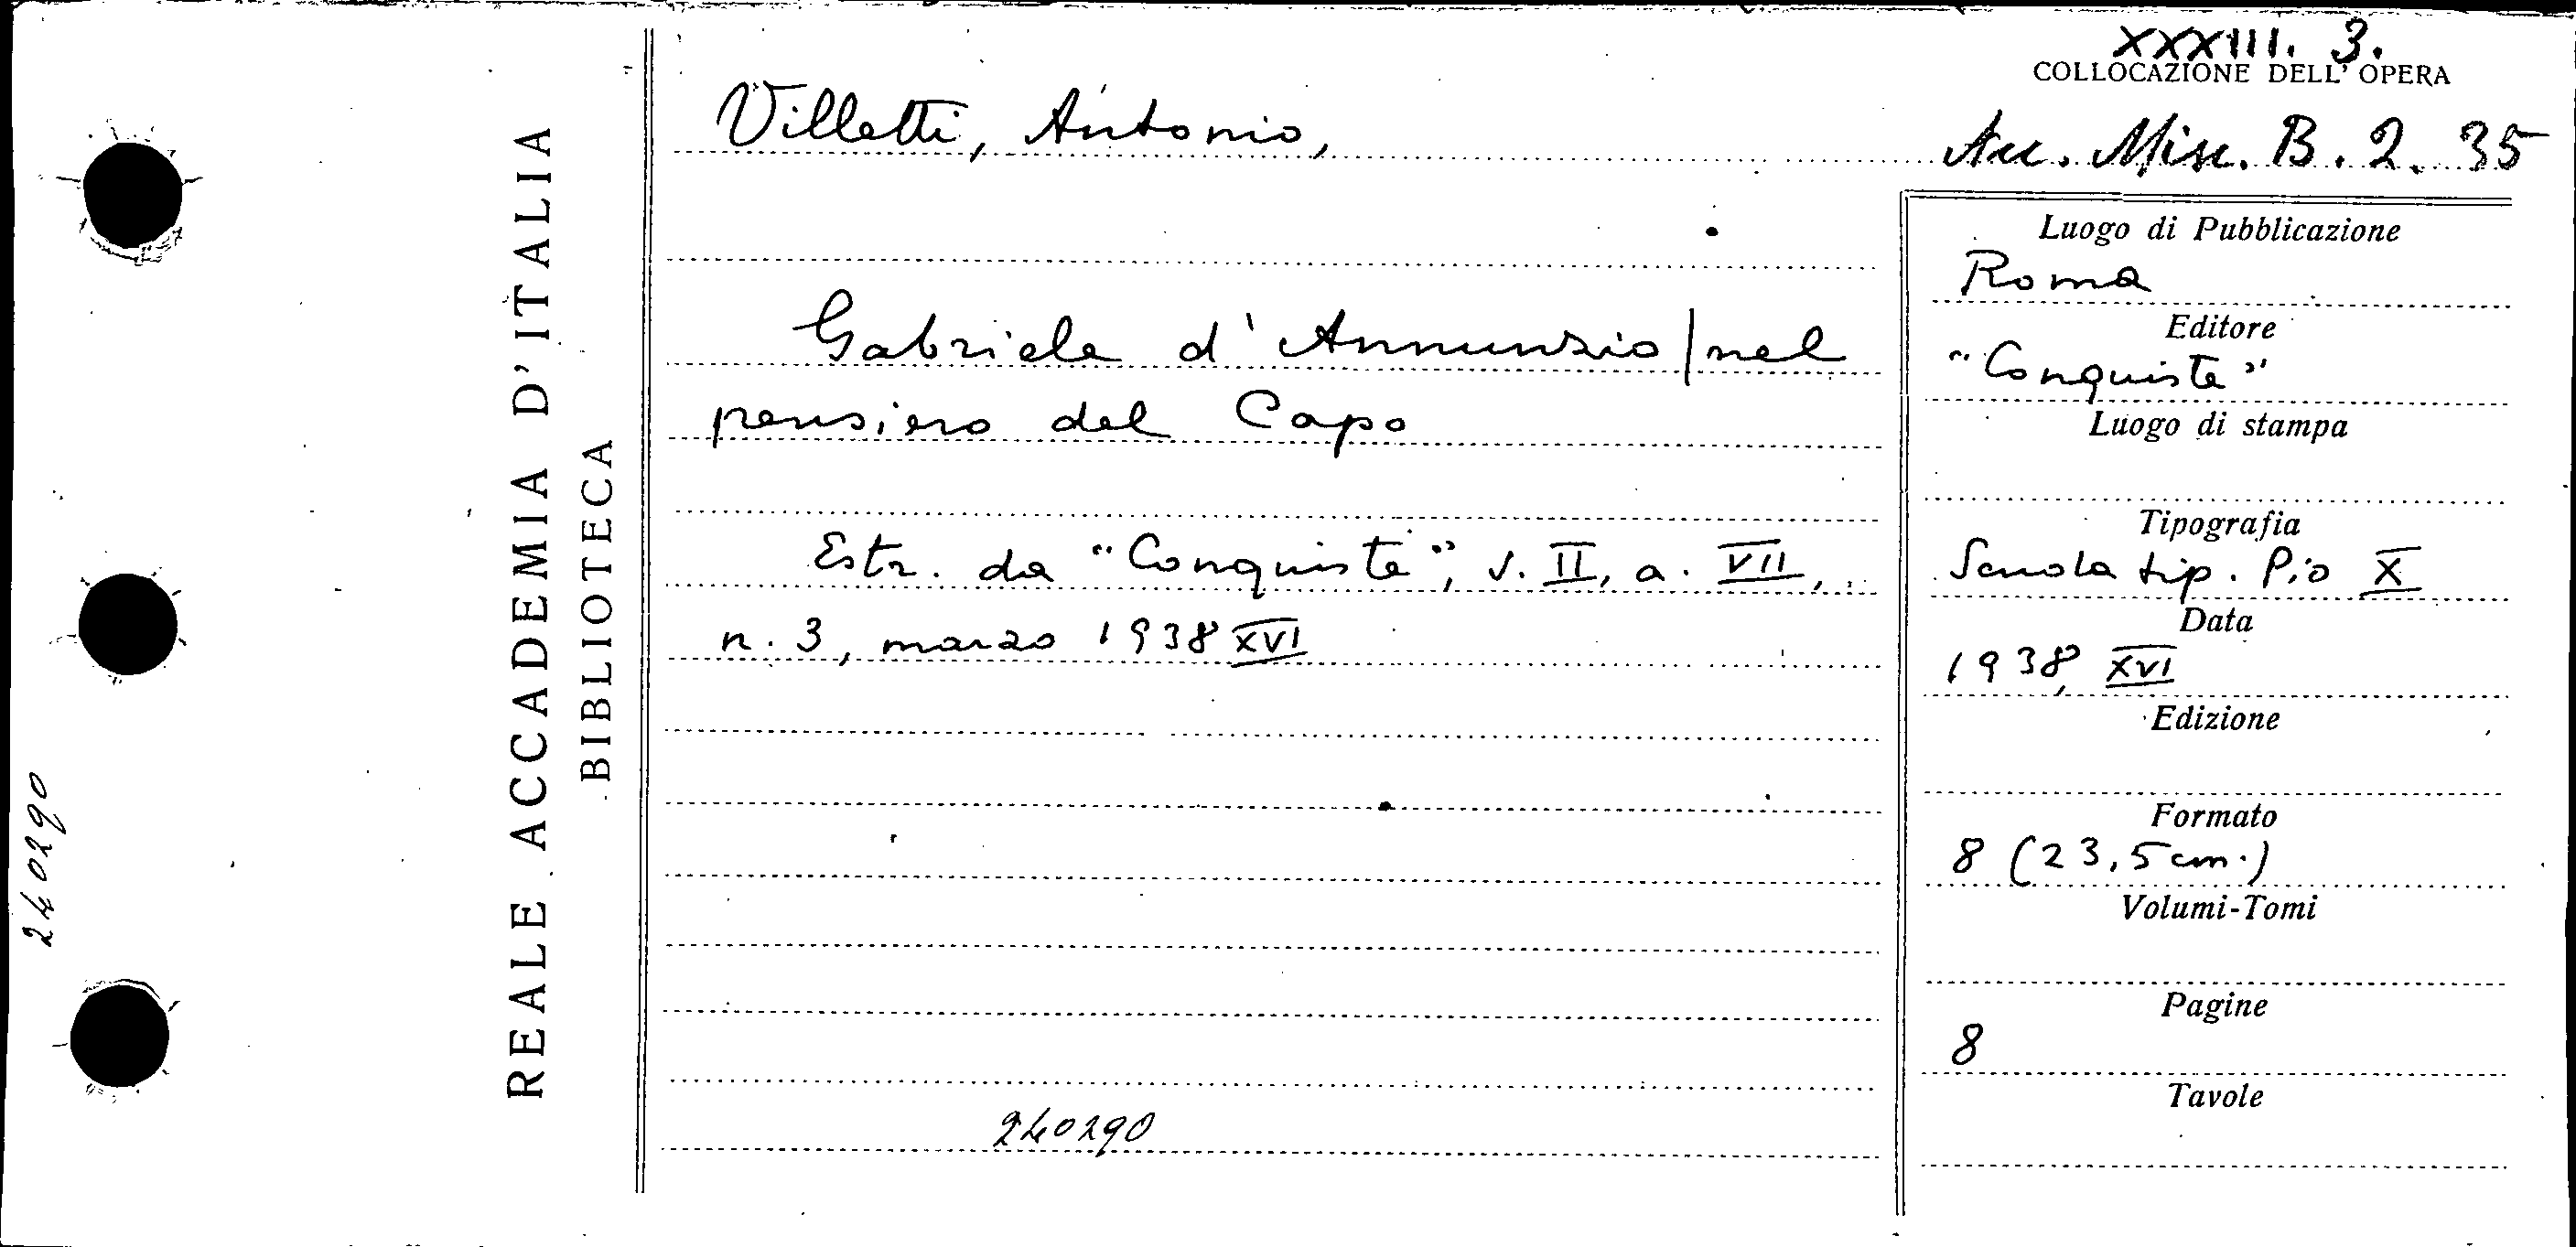 XXXIII. 3.
COLLOCAZIONE DELL' OPERA
Acc. Misc. B. 2. 35
REALE ACCADEMIA D'ITALIA
BIBLIOTECA
240290
Villetti, Antonio,
Gabriele d'Annunzio | nel
pensiero del Capo
Estr. da "Conquiste", v. II, a. VII,
n. 3, marzo 1938 XVI
240290
Luogo di Pubblicazione
Roma
Editore
"Conquiste"
Luogo di stampa
Tipografia
Scuola tip. Pio X
Data
1938, XVI
Edizione
Formato
8 (23,5 cm.)
Volumi-Tomi
Pagine
8
Tavole